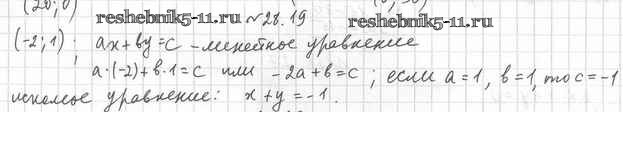 (20; 0)
reshebnik5-11.ru №28.19 reshebnik5-11.ru
(-2; 1); ax + by = c - линейное уравнение
a·(-2) + b·1 = c или -2a + b = c; если a = 1, b = 1, то c = -1
искомое уравнение: x + y = -1.